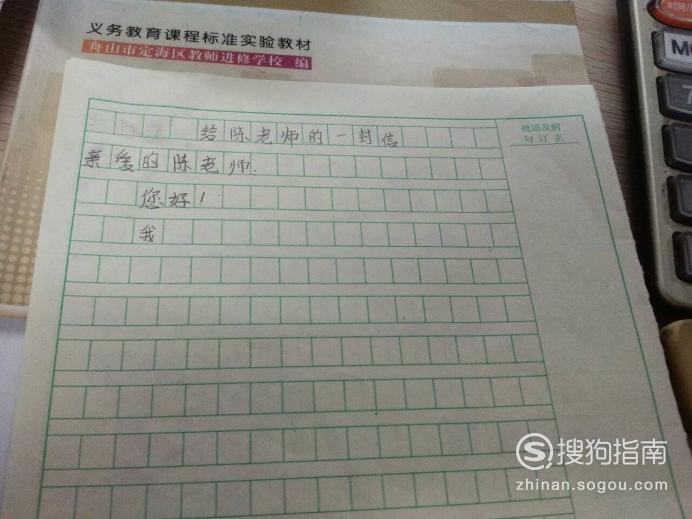 义务教育课程标准实验教材
舟山市定海区教师进修学校 编
给陈老师的一封信
批语及病
句订正
亲爱的陈老师.
您好!
我
搜狗指南
zhinan.sogou.com